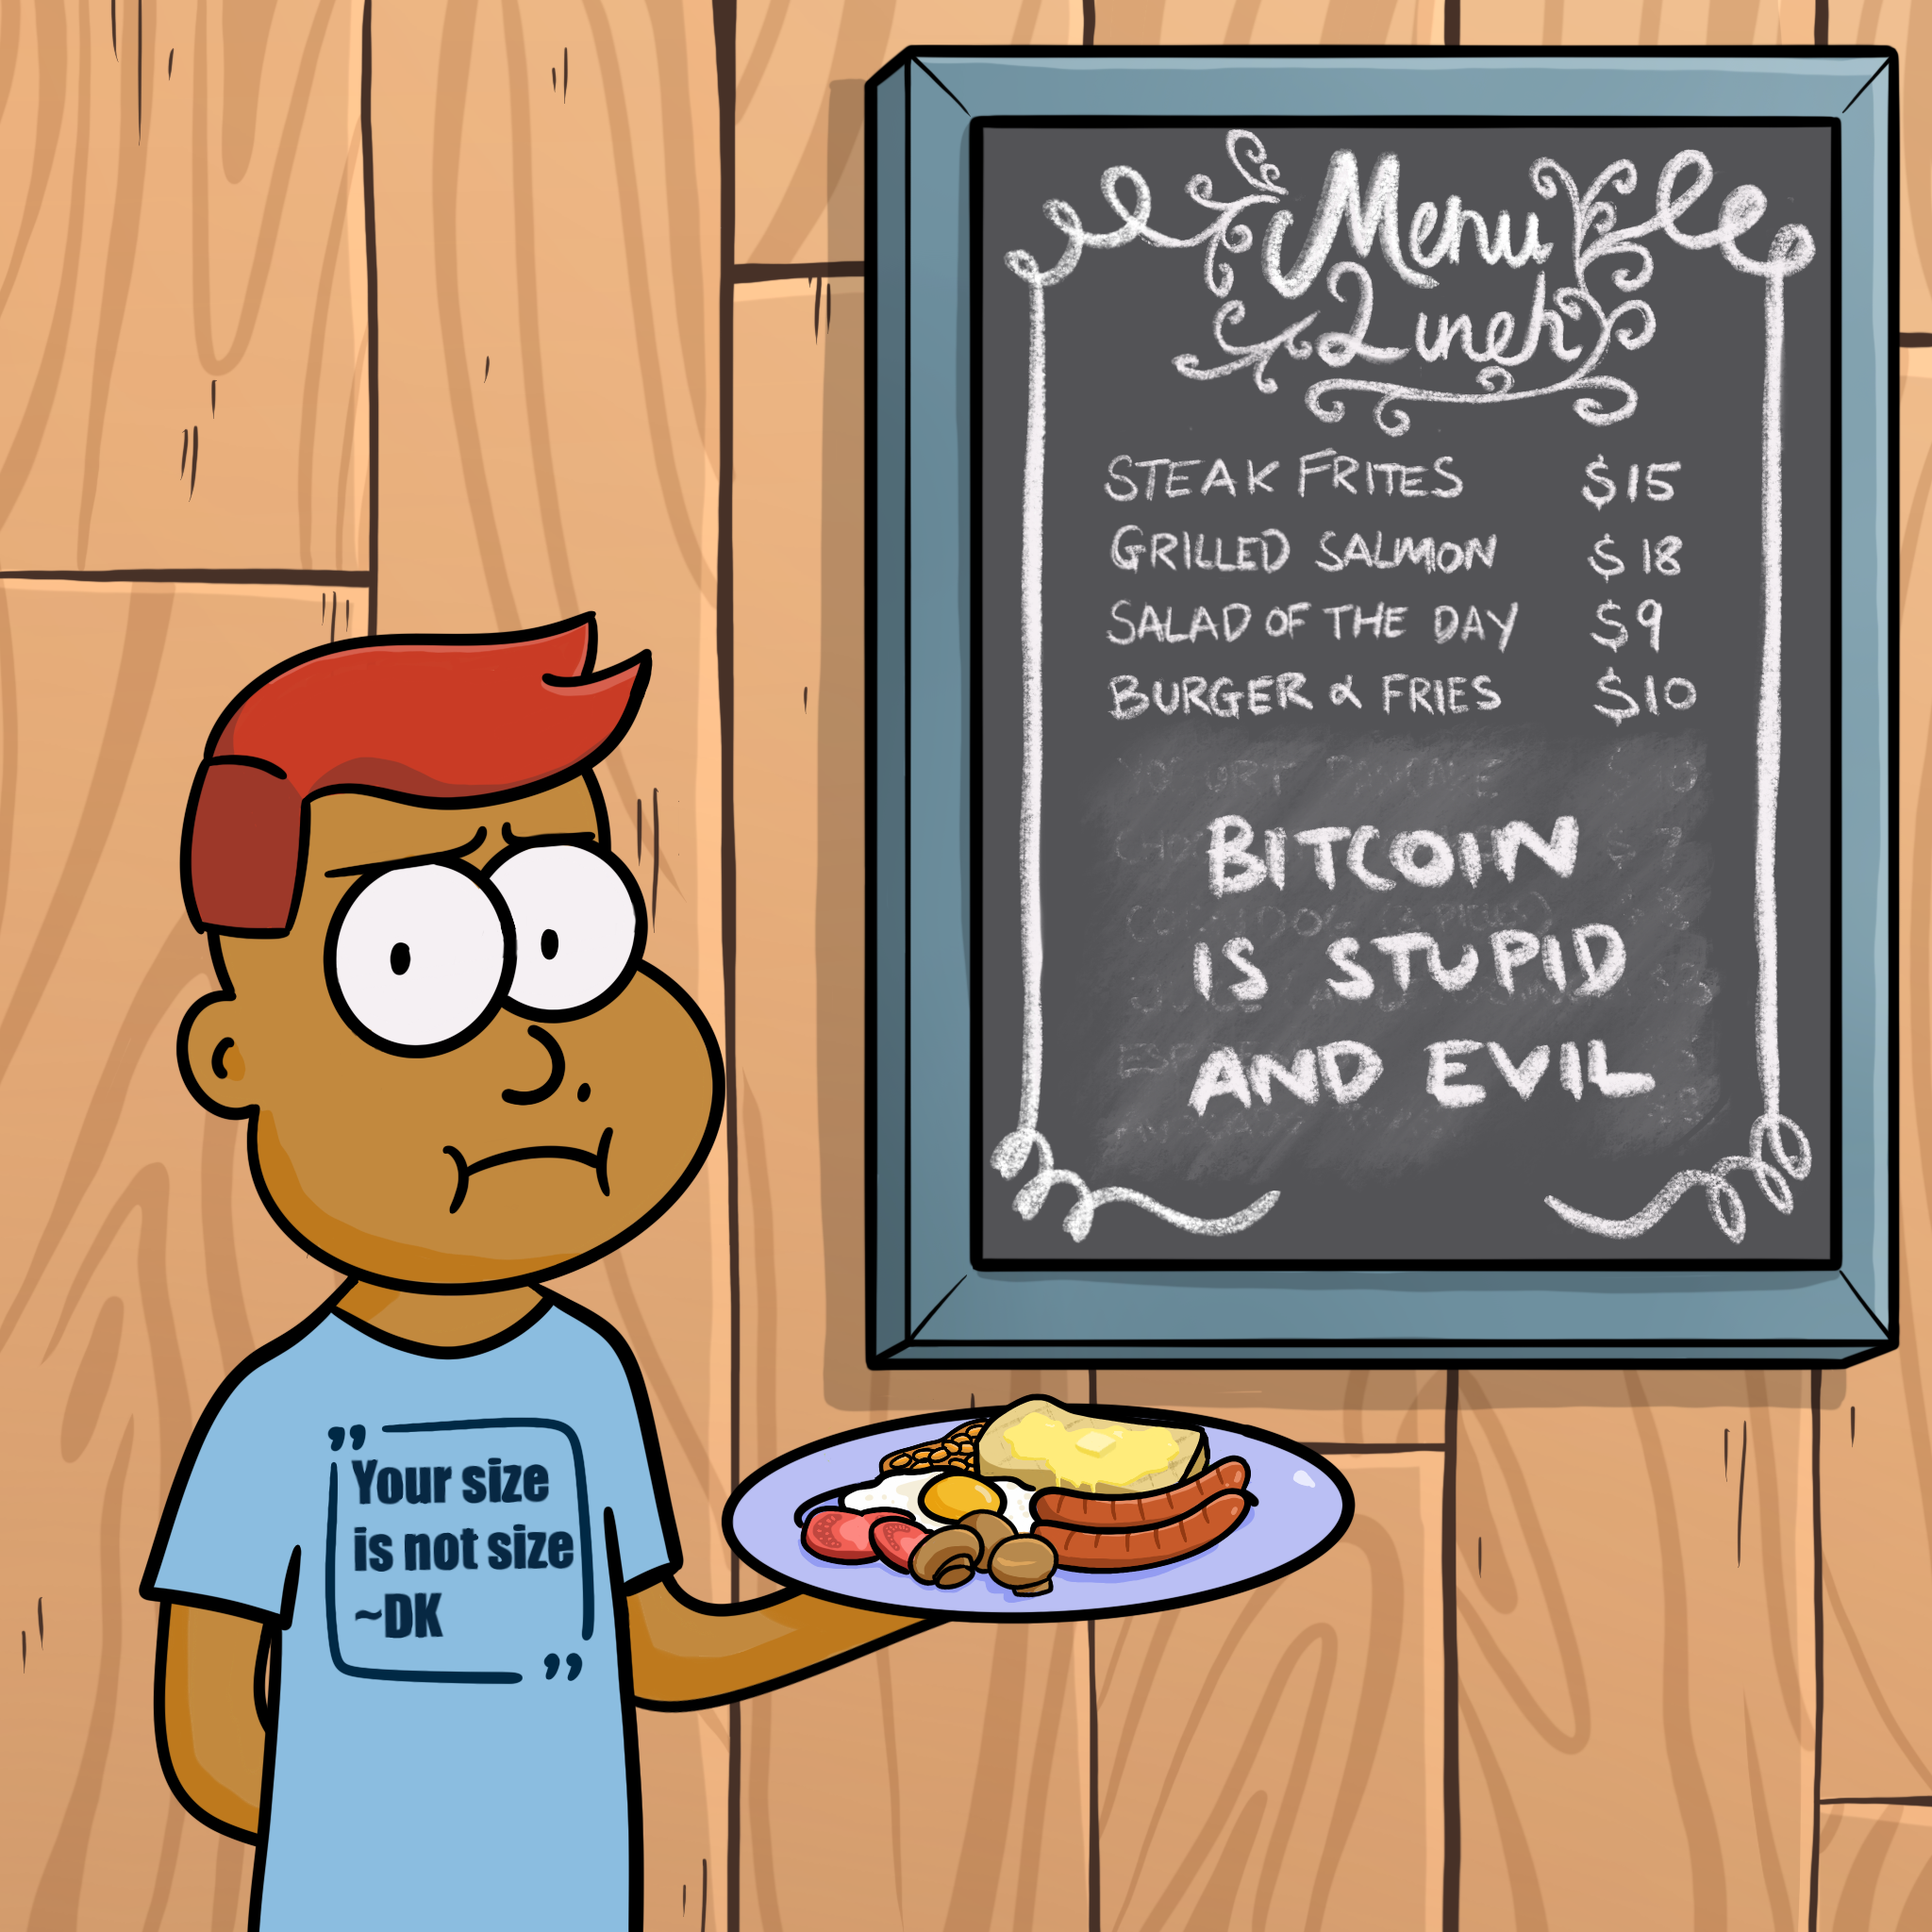 Menu
Lunch
STEAK FRITES $15
GRILLED SALMON $18
SALAD OF THE DAY $9
BURGER & FRIES $10
BITCOIN
IS STUPID
AND EVIL
Your size
is not size
~DK